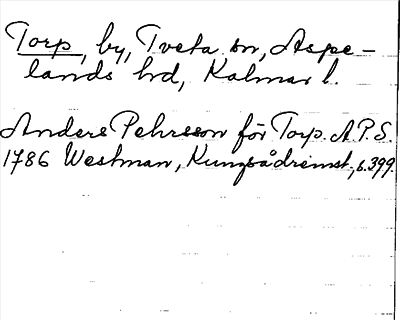 Torp, by, Tveta sn, Aspe-
lands hd, Kalmar l.
Anders Pehrsson för Torp. A.P.S.
1786 Westman, Kungsådremst, s. 399.